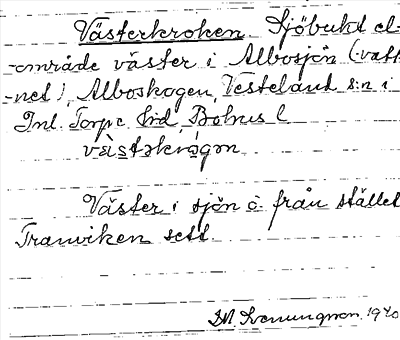 Västerkroken Sjöbukt el-
-område väster i Albosjön (-vatt-
-net), Alboskogen, Vesteland s:n i
Inl. Torpe hrd, Bohus l
Väster i sjön ö. från stället
Tranviken sett.